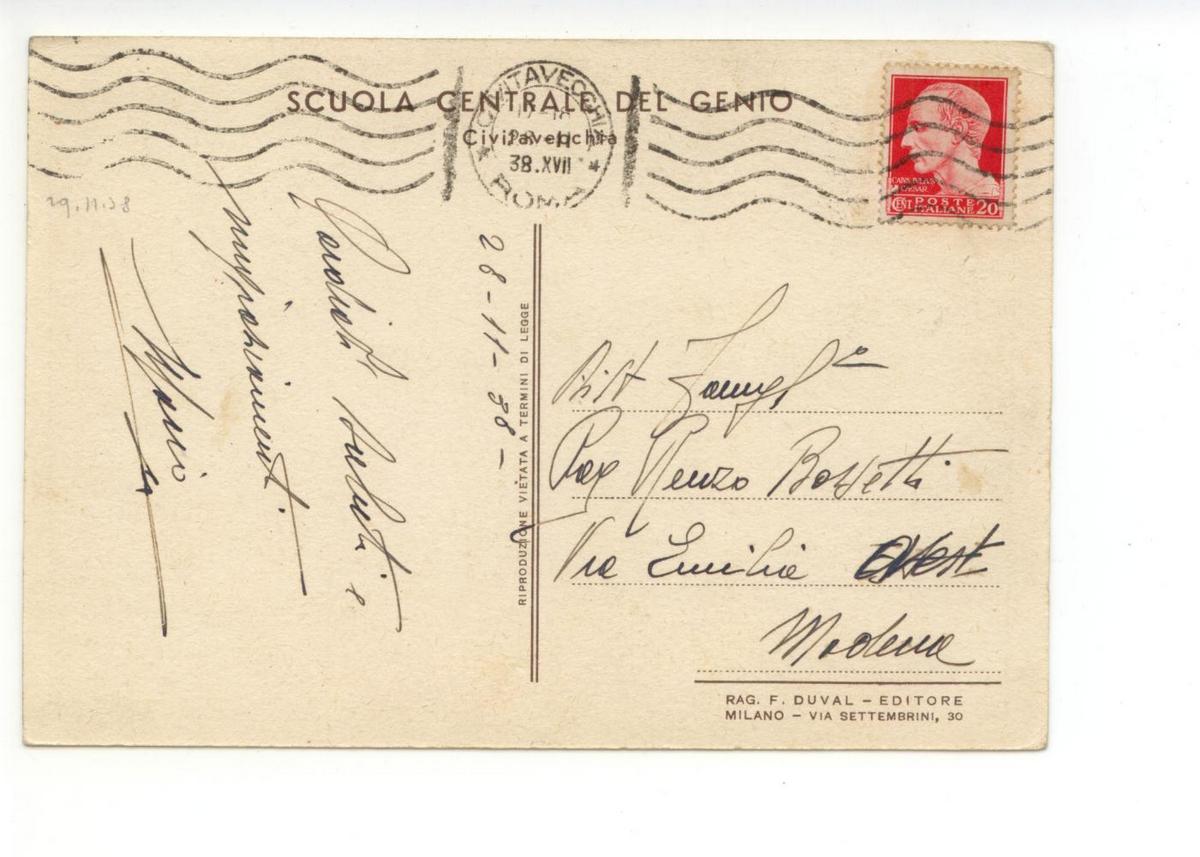 SCUOLA CENTRALE DEL GENIO
Civitavecchia
CIVITAVECCHIA
38.XVII
ROMA
CAIVS IVLIVS
CAESAR
CENT. POSTE ITALIANE 20
29.11.38
28-11-38-
Cordiali saluti e
ringraziamenti
Mario
RIPRODUZIONE VIETATA A TERMINI DI LEGGE
Dist Famigl
Rag Renzo Bossetti
Via Emilia Ovest
Modena
RAG. F. DUVAL – EDITORE
MILANO – VIA SETTEMBRINI, 30